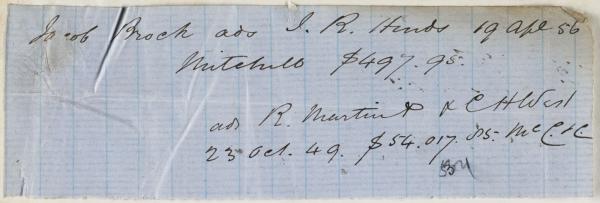 Jacob Brock ads I. R. Hinds 19 Apl 56
Mitchell $497.95.
ads R. Martin & C H West
23 Oct. 49. $54.017.85. McC &C